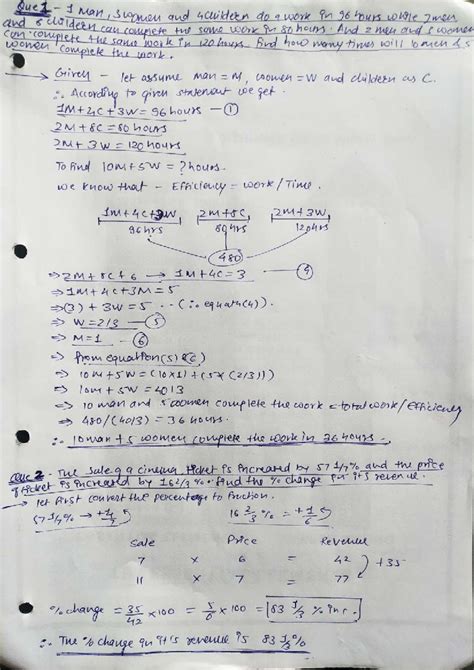 Que 1 - 1 Man, 3 women and 4 children do a work in 96 hours while 2 men
and 8 children can complete the same work in 80 hours. And 2 men and 3 women
can complete the same work in 120 hours. find how many times will 10 men & 5
women complete the work.
Given - let assume man = M, women = W and children as C.
∴ According to given statement we get.
1M+4C+3W = 96 hours - ①
2M+8C = 80 hours
2M+3W = 120 hours
To find 10M+5W = ? hours.
we know that - Efficiency = work/Time.
1M+4C+3W 2M+8C 2M+3W
96hrs 80hrs 120hrs
480
⇒ 2M+8C+6 → 1M+4C=3 - ④
⇒ 1M+4C+3M = 5
⇒ (3) + 3W = 5 -- (∴ equat4(4)).
⇒ W = 2/3 - ⑤
⇒ M=1 - ⑥
⇒ from equation (5) & C)
⇒ 10M+5W = (10x1)+(5x(2/3))
⇒ 10M+5W = 40/3
⇒ 10 man and 5 women complete the work = total work/efficiency
⇒ 480/(40/3) = 36 hours.
∴ 10 man + 5 women complete the work in 36 hours.
Que 2 - The sale of a cinema ticket is increased by 57 1/7% and the price
of ticket is increased by 16 2/3 %. find the % change in it's revenue.
→ let first convert the percentage to fraction.
57 1/7% → + 16 2/3 % = +1/6
Sale Price Revenue
7 x 6 = 42
+35
11 x 7 = 77
% change = 35/42 x100 = 5/6 x100 = 83 1/3 % inc.
∴ The % change in it's revenue is 83 1/3%